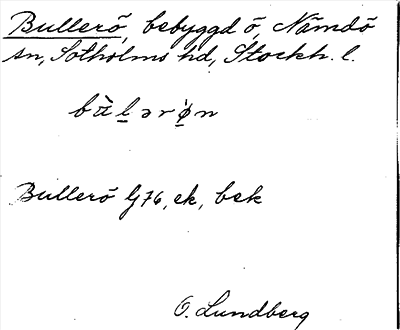 Bullerö, bebyggd ö, Nämdö
sn, Sotholms hd, Stockh. l.
Bullerö G76, ek, bek
O. Lundberg